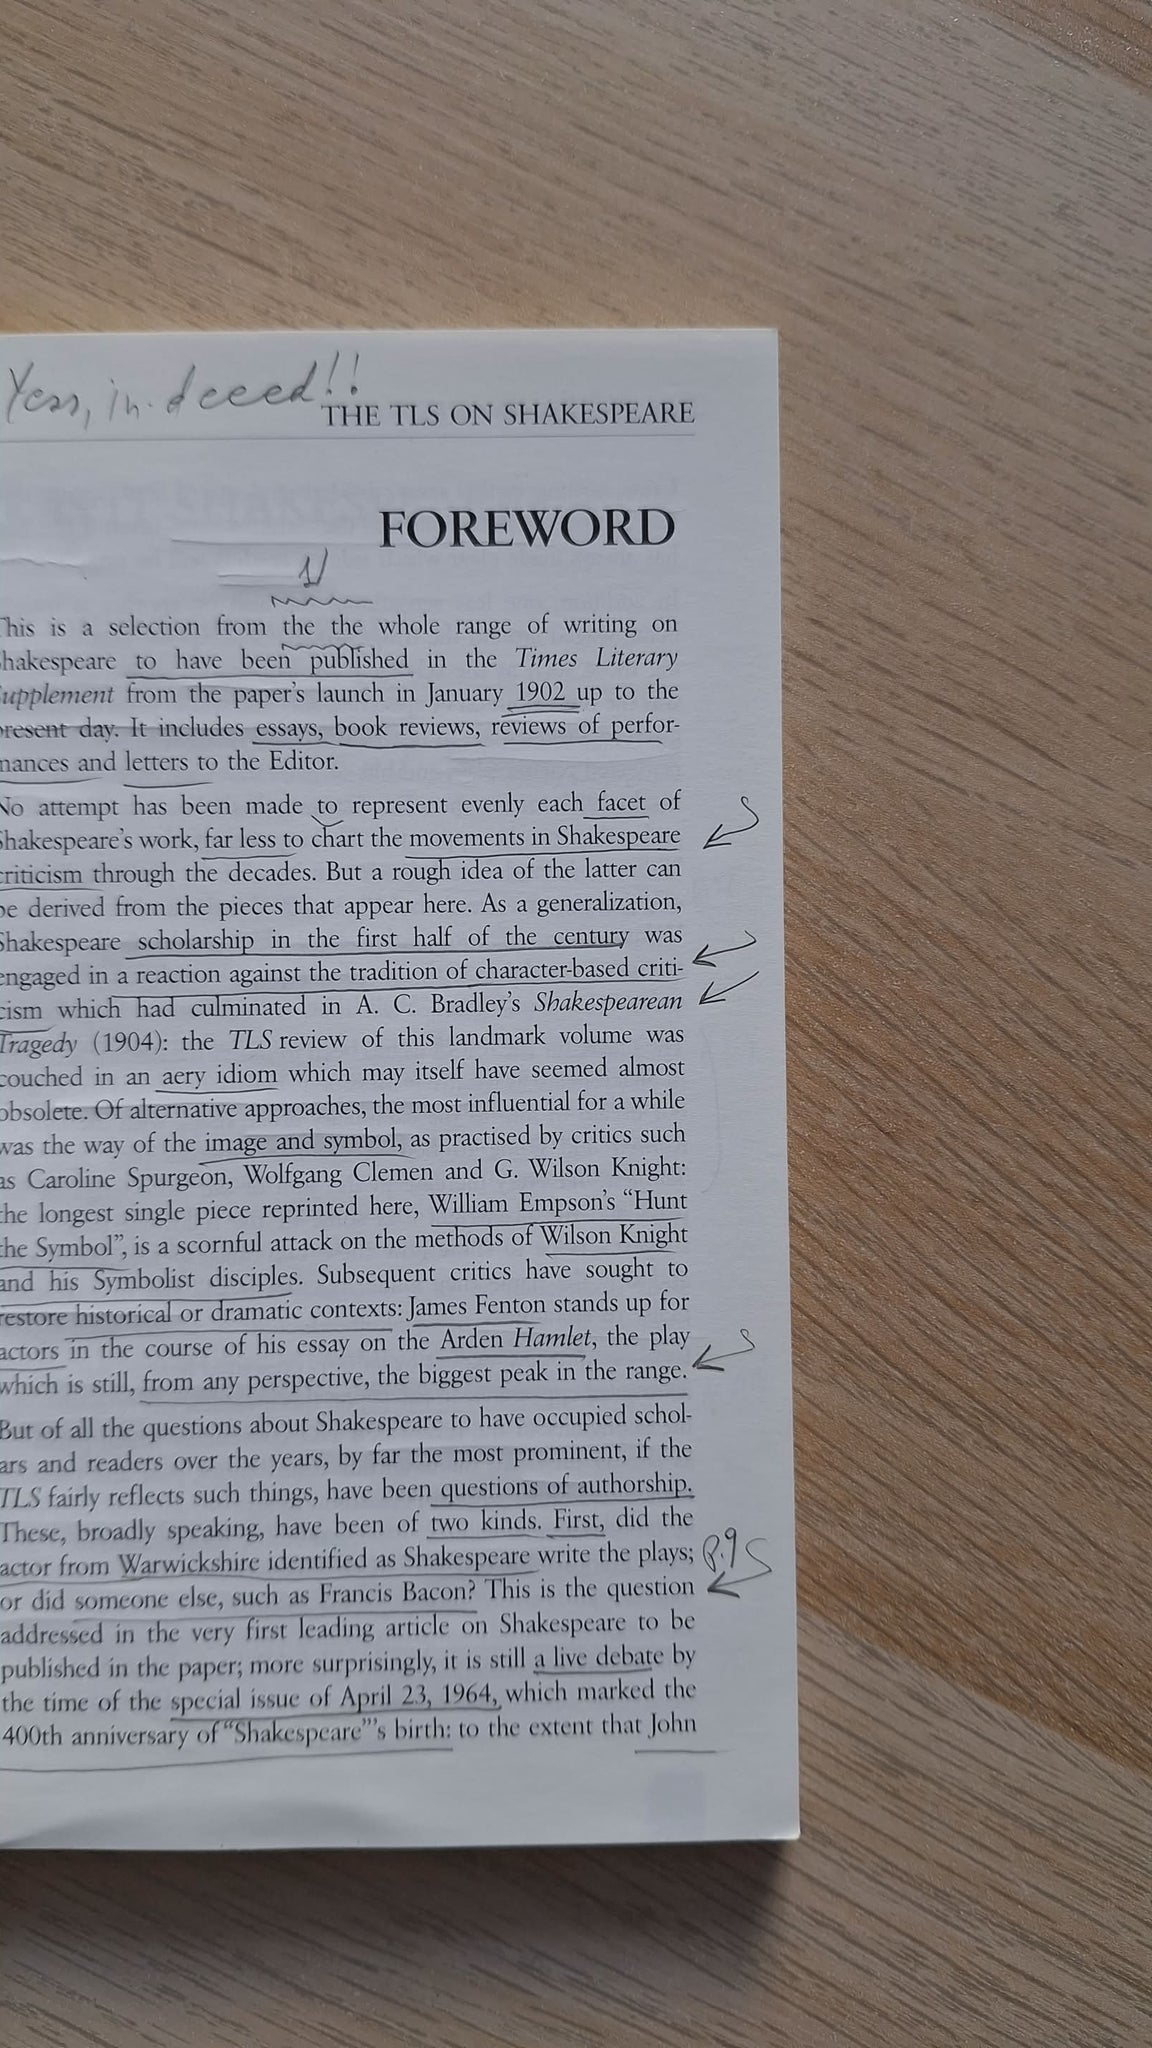 Yess, in-deeed!!
THE TLS ON SHAKESPEARE
FOREWORD
1/
This is a selection from the the whole range of writing on
Shakespeare to have been published in the Times Literary
Supplement from the paper's launch in January 1902 up to the
present day. It includes essays, book reviews, reviews of perfor-
mances and letters to the Editor.
No attempt has been made to represent evenly each facet of
Shakespeare's work, far less to chart the movements in Shakespeare
criticism through the decades. But a rough idea of the latter can
be derived from the pieces that appear here. As a generalization,
Shakespeare scholarship in the first half of the century was
engaged in a reaction against the tradition of character-based criti-
cism which had culminated in A. C. Bradley's Shakespearean
Tragedy (1904): the TLS review of this landmark volume was
couched in an aery idiom which may itself have seemed almost
obsolete. Of alternative approaches, the most influential for a while
was the way of the image and symbol, as practised by critics such
as Caroline Spurgeon, Wolfgang Clemen and G. Wilson Knight:
the longest single piece reprinted here, William Empson's “Hunt
the Symbol”, is a scornful attack on the methods of Wilson Knight
and his Symbolist disciples. Subsequent critics have sought to
restore historical or dramatic contexts: James Fenton stands up for
actors in the course of his essay on the Arden Hamlet, the play
which is still, from any perspective, the biggest peak in the range.
But of all the questions about Shakespeare to have occupied schol-
ars and readers over the years, by far the most prominent, if the
TLS fairly reflects such things, have been questions of authorship.
These, broadly speaking, have been of two kinds. First, did the
actor from Warwickshire identified as Shakespeare write the plays; p.9
or did someone else, such as Francis Bacon? This is the question
addressed in the very first leading article on Shakespeare to be
published in the paper; more surprisingly, it is still a live debate by
the time of the special issue of April 23, 1964, which marked the
400th anniversary of “Shakespeare”'s birth: to the extent that John